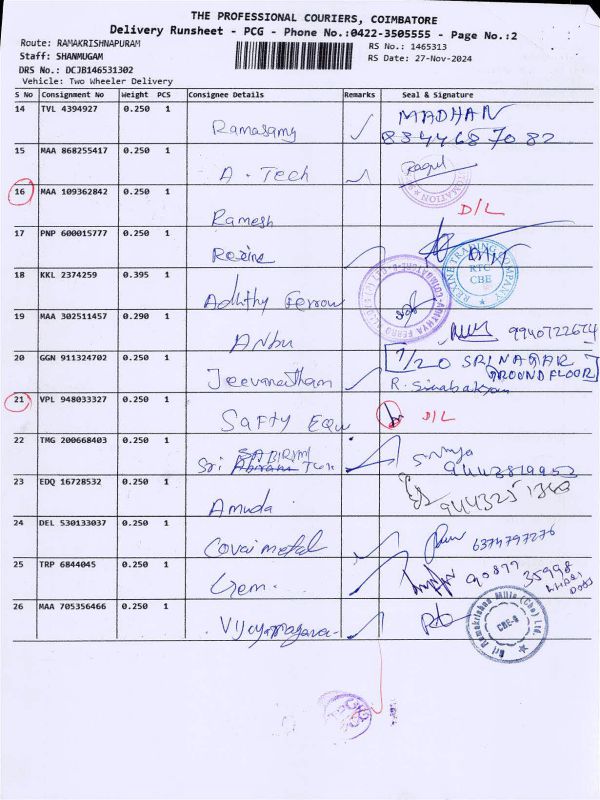 THE PROFESSIONAL COURIERS, COIMBATORE
Delivery Runsheet - PCG - Phone No.:0422-3505555 - Page No.:2
Route: RAMAKRISHNAPURAM
RS No.: 1465313
Staff: SHANMUGAM
RS Date: 27-Nov-2024
DRS No.: DCJB146531302
Vehicle: Two Wheeler Delivery
S No Consignment No Weight PCS Consignee Details Remarks Seal & Signature
14 TVL 4394927 0.250 1 Ramasamy MADHAN
8344687082
15 MAA 868255417 0.250 1 A. Tech
16 MAA 109362842 0.250 1 Ramesh D/L
17 PNP 600015777 0.250 1 Rexine
REXINE TRADING COMPANY
RTC
CBE
18 KKL 2374259 0.395 1 Adhithy Ferrow
19 MAA 302511457 0.290 1 Anbu 9940722674
20 GGN 911324702 0.250 1 Jeevanatham 7/20 SRINAGAR
GROUND FLOOR
21 VPL 948033327 0.250 1 Safty Equ D/L
22 TMG 200668403 0.250 1 Sri SABIRAM Tex
23 EDQ 16728532 0.250 1 Amuda
24 DEL 530133037 0.250 1 Covai metal 6374797276
25 TRP 6844045 0.250 1 Gem. 90877 35998
26 MAA 705356466 0.250 1
Sri Ramakrishna Mills (Cbe) Ltd.
CBE-6